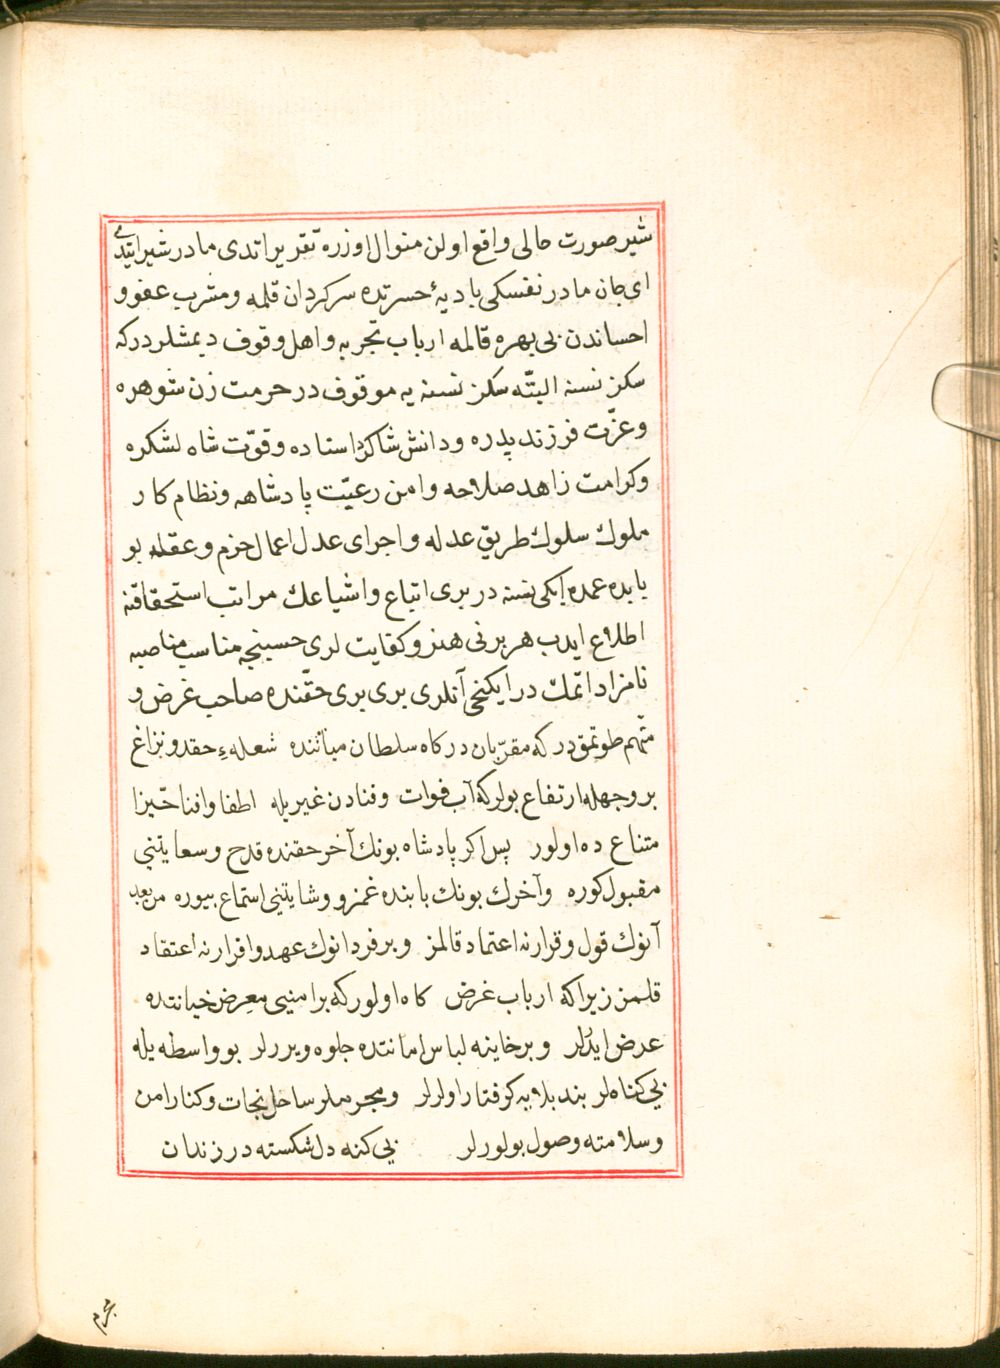 شیر صورت حالی واقع اولن منوال اوزره تقریر اتدی مادر شیر ایتدی
ای جان مادر نفسکی بادیهٔ حسرتده سرکردان قلمه و مشرب عفو و
احساندن بی بهره قالمه ارباب تجربه و اهل وقوف دیمشلردرکه
سکز نسنه البتّه سکز نسنه یه موقوف در حرمت زن شوهره
و عزّت فرزند پدره و دانش شاکرد استاده و قوّت شاه لشکره
و کرامت زاهد صلاحه و امن رعیّت پادشاهه و نظام کار
ملوك سلوك طریق عدله و اجرای عدل اعمال حزم و عقله بو
بابده عمده ایکی نسنه در بری اتباع و اشیاعك مراتب استحقاقنه
اطلاع ایدب هر برنی هنر و کفایت لری حسبنجه مناسب مناصبه
نامزاد اتمك در ایکنجی آنلری بری بری حقّنده صاحب غرض و
متهم طوتمق در که مقرّبان درکاه سلطان میاننده شعلهء حقد و نزاع
بر وجهله ارتفاع بولرکه آب فوات و فنادن غیریله اطفا و افنا حیّز
امتناع ده اولور پس اکر پادشاه بونك آخر حقنده قدح و سعایتنی
مقبول کوره و آخرك بونك بابنده غمز و وشایتنی استماع بیوره من بعد
آنوك قول و قرارنه اعتماد قالمز و بر فرد انوك عهد و اقرارنه اعتقاد
قلمز زیرا که ارباب غرض کاه اولورکه بر امنیی معرض خیانتده
عرض ایدلر و بر خاینه لباس امانتده جلوه ویررلر بو واسطه یله
بی کناه لر بند بلایه کرفتار اولرلر و مجرملر ساحل نجات و کنار امن
و سلامته وصول بولورلر بی کنه دل شکسته در زندان
مجرم